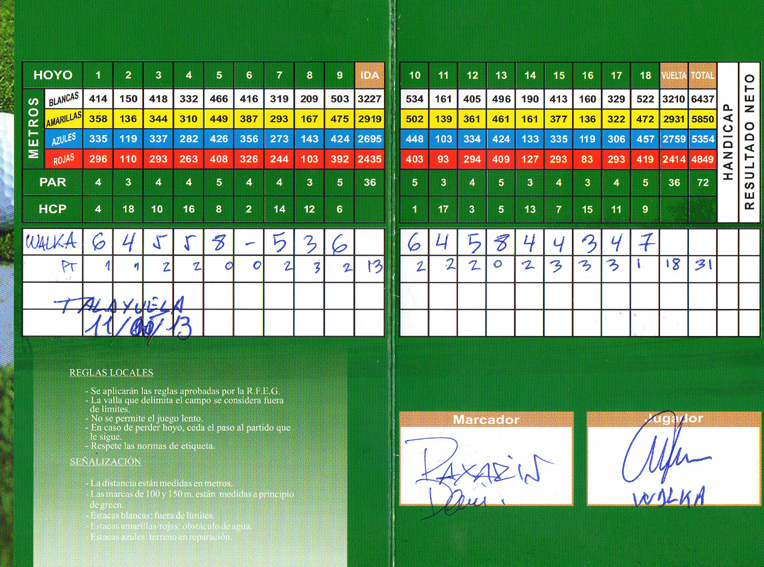 HOYO 1 2 3 4 5 6 7 8 9 IDA 10 11 12 13 14 15 16 17 18 VUELTA TOTAL HANDICAP RESULTADO NETO
METROS
BLANCAS 414 150 418 332 466 416 319 209 503 3227 534 161 405 496 190 413 160 329 522 3210 6437
AMARILLAS 358 136 344 310 449 387 293 167 475 2919 502 139 361 461 161 377 136 322 472 2931 5850
AZULES 335 119 337 282 426 356 273 143 424 2695 448 103 334 424 133 335 119 306 457 2759 5354
ROJAS 296 110 293 263 408 326 244 103 392 2435 403 93 294 409 127 293 83 293 419 2414 4849
PAR 4 3 4 4 5 4 4 3 5 36 5 3 4 5 3 4 3 4 5 36 72
HCP 4 18 10 16 8 2 14 12 6 1 17 3 5 13 7 15 11 9
WALKA 6 4 5 5 8 - 5 3 6 6 4 5 8 4 4 3 4 7
PT 1 1 2 2 0 0 2 3 2 13 2 2 2 0 2 3 3 3 1 18 31
TALAYUELA
REGLAS LOCALES
- Se aplicarán las reglas aprobadas por la R.F.E.G.
- La valla que delimita el campo se considera fuera
de límites.
- No se permite el juego lento.
- En caso de perder hoyo, ceda el paso al partido que
le sigue.
- Respete las normas de etiqueta.
SEÑALIZACIÓN
- La distancia están medidas en metros.
- Las marcas de 100 y 150 m. están medidas a principio
de green.
- Estacas blancas: fuera de límites.
- Estacas amarillas/rojas: obstáculo de agua.
- Estacas azules: terreno en reparación.
Marcador
Jugador
WALKA